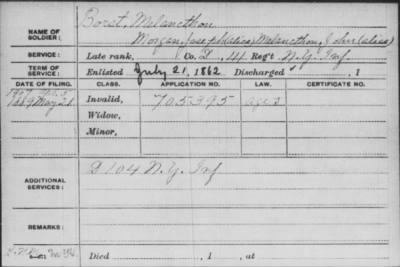 NAME OF SOLDIER: Borst, Melancthon
Morgan, Joseph (alias), Melancthon, John (alias)
SERVICE: Late rank, Co. D, 14 Reg't N.Y. Inf
TERM OF SERVICE: Enlisted July 21, 1862 Discharged , 1
DATE OF FILING. CLASS. APPLICATION NO. LAW. CERTIFICATE NO.
May 21 Invalid, 705395
Widow,
Minor,
ADDITIONAL SERVICES: D 104 N.Y. Inf
REMARKS:
Died , 1 , at